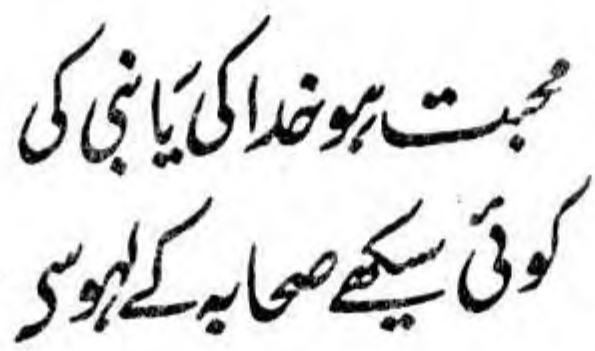 محبت ہو خدا کی یا نبی کی
کوئی سیکھے صحابہ کے لہو سے